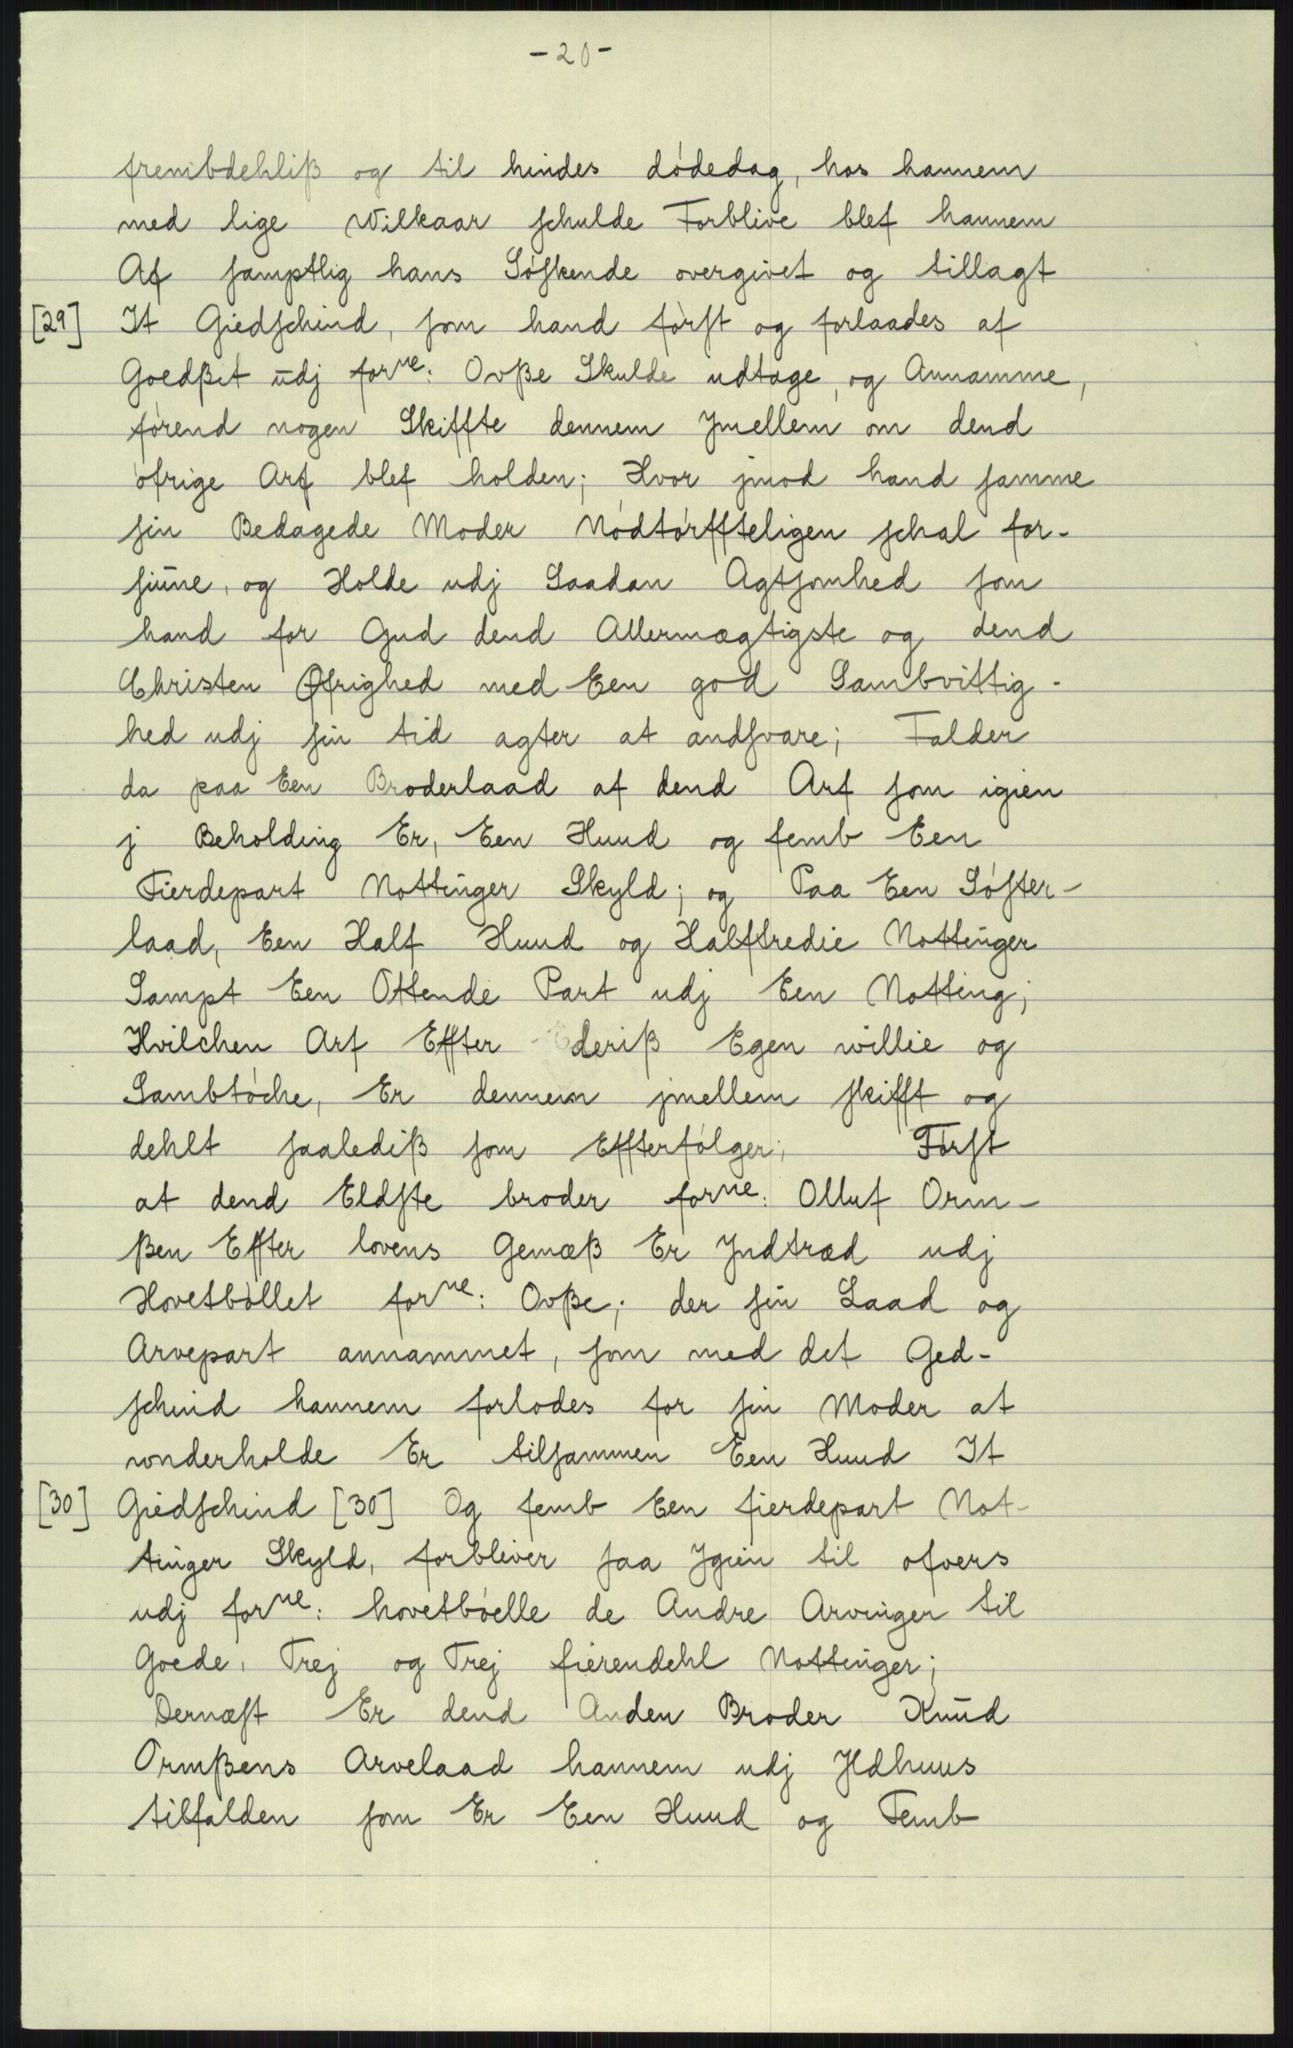 -20-
frembdehliß og til hindes dódedag, hos hannem
med lige Wilkaar schulde Forblive blef hannem
Af samptlig hans Sóskende overgivet og tillagt
[29] It Giedschind, som hand fórst og forlaades af
Goedßet ūdj forne: Ovße Skulde udtage, og Annamme,
fórend nogen Skiffte dennem Jmellem om dend
ófrige Arf blef holden; Hvor jmod hand samme
sin Bedagede Moder Nódtórffteligen schal for-
siūne, og Holde udj Saadan Agtsomhed som
hand for Gud dend Allermægtigste og dend
Christen Øfrighed med Een god Sambvittig-
hed udj sin tid agter at andsvare; Falder
da paa Een Broderlaad af dend Arf som igien
j Beholding Er, Een Huud og femb Een
Fierdepart Nottinger Skyld; og Paa Een Sóster-
laad, Een Half Huud og Halftredie Nottinger
Sampt Een Ottende Part udj Een Notting;
Hvilchen Arf Effter Ederiß Egen willie og
Sambtóche, Er dennem jmellem skifft og
dehlt saalediß som Effterfólger; Fórst
at dend Eldste broder forne: Olluf Orm-
ßen Effter lovens Gemæß Er Jndtræd udj
Hovetbóllet forne: Ovße; der sin Laad og
Arvepart annammet, som med det Ged-
schind hannem forlodes for sin Moder at
wnderholde Er tilsammen Een Huud It
[30] Giedschind [30] Og femb Een fierdepart Not-
tinger Skyld, forbliver saa Jgien til ofvers
udj forne: hovetbóelle de Andre Arvinger til
Goede, Trej og Trej fierendehl Nottinger;
Dernæst Er dend Anden Broder Knūd
Ormßens Arvelaad hannem udj Jldhuus
tilfalden som Er Een Huud og Femb